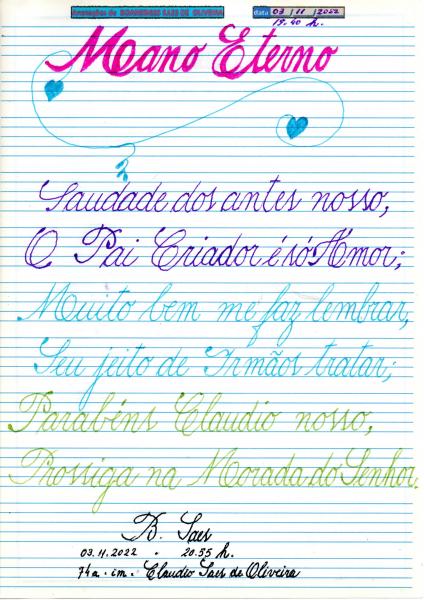 Anotações de BOANERGES SAES DE OLIVEIRA data 03 / 11 / 2022
19:40 h.
Mano Eterno
Saudade dos antes nosso,
O Pai Criador é só Amor;
Muito bem me faz lembrar,
Seu jeito de Irmãos tratar;
Parabéns Claudio nosso,
Prossiga na Morada do Senhor.
B. Saes
03.11.2022 • 20:55 h.
74 a. im. Claudio Saes de Oliveira